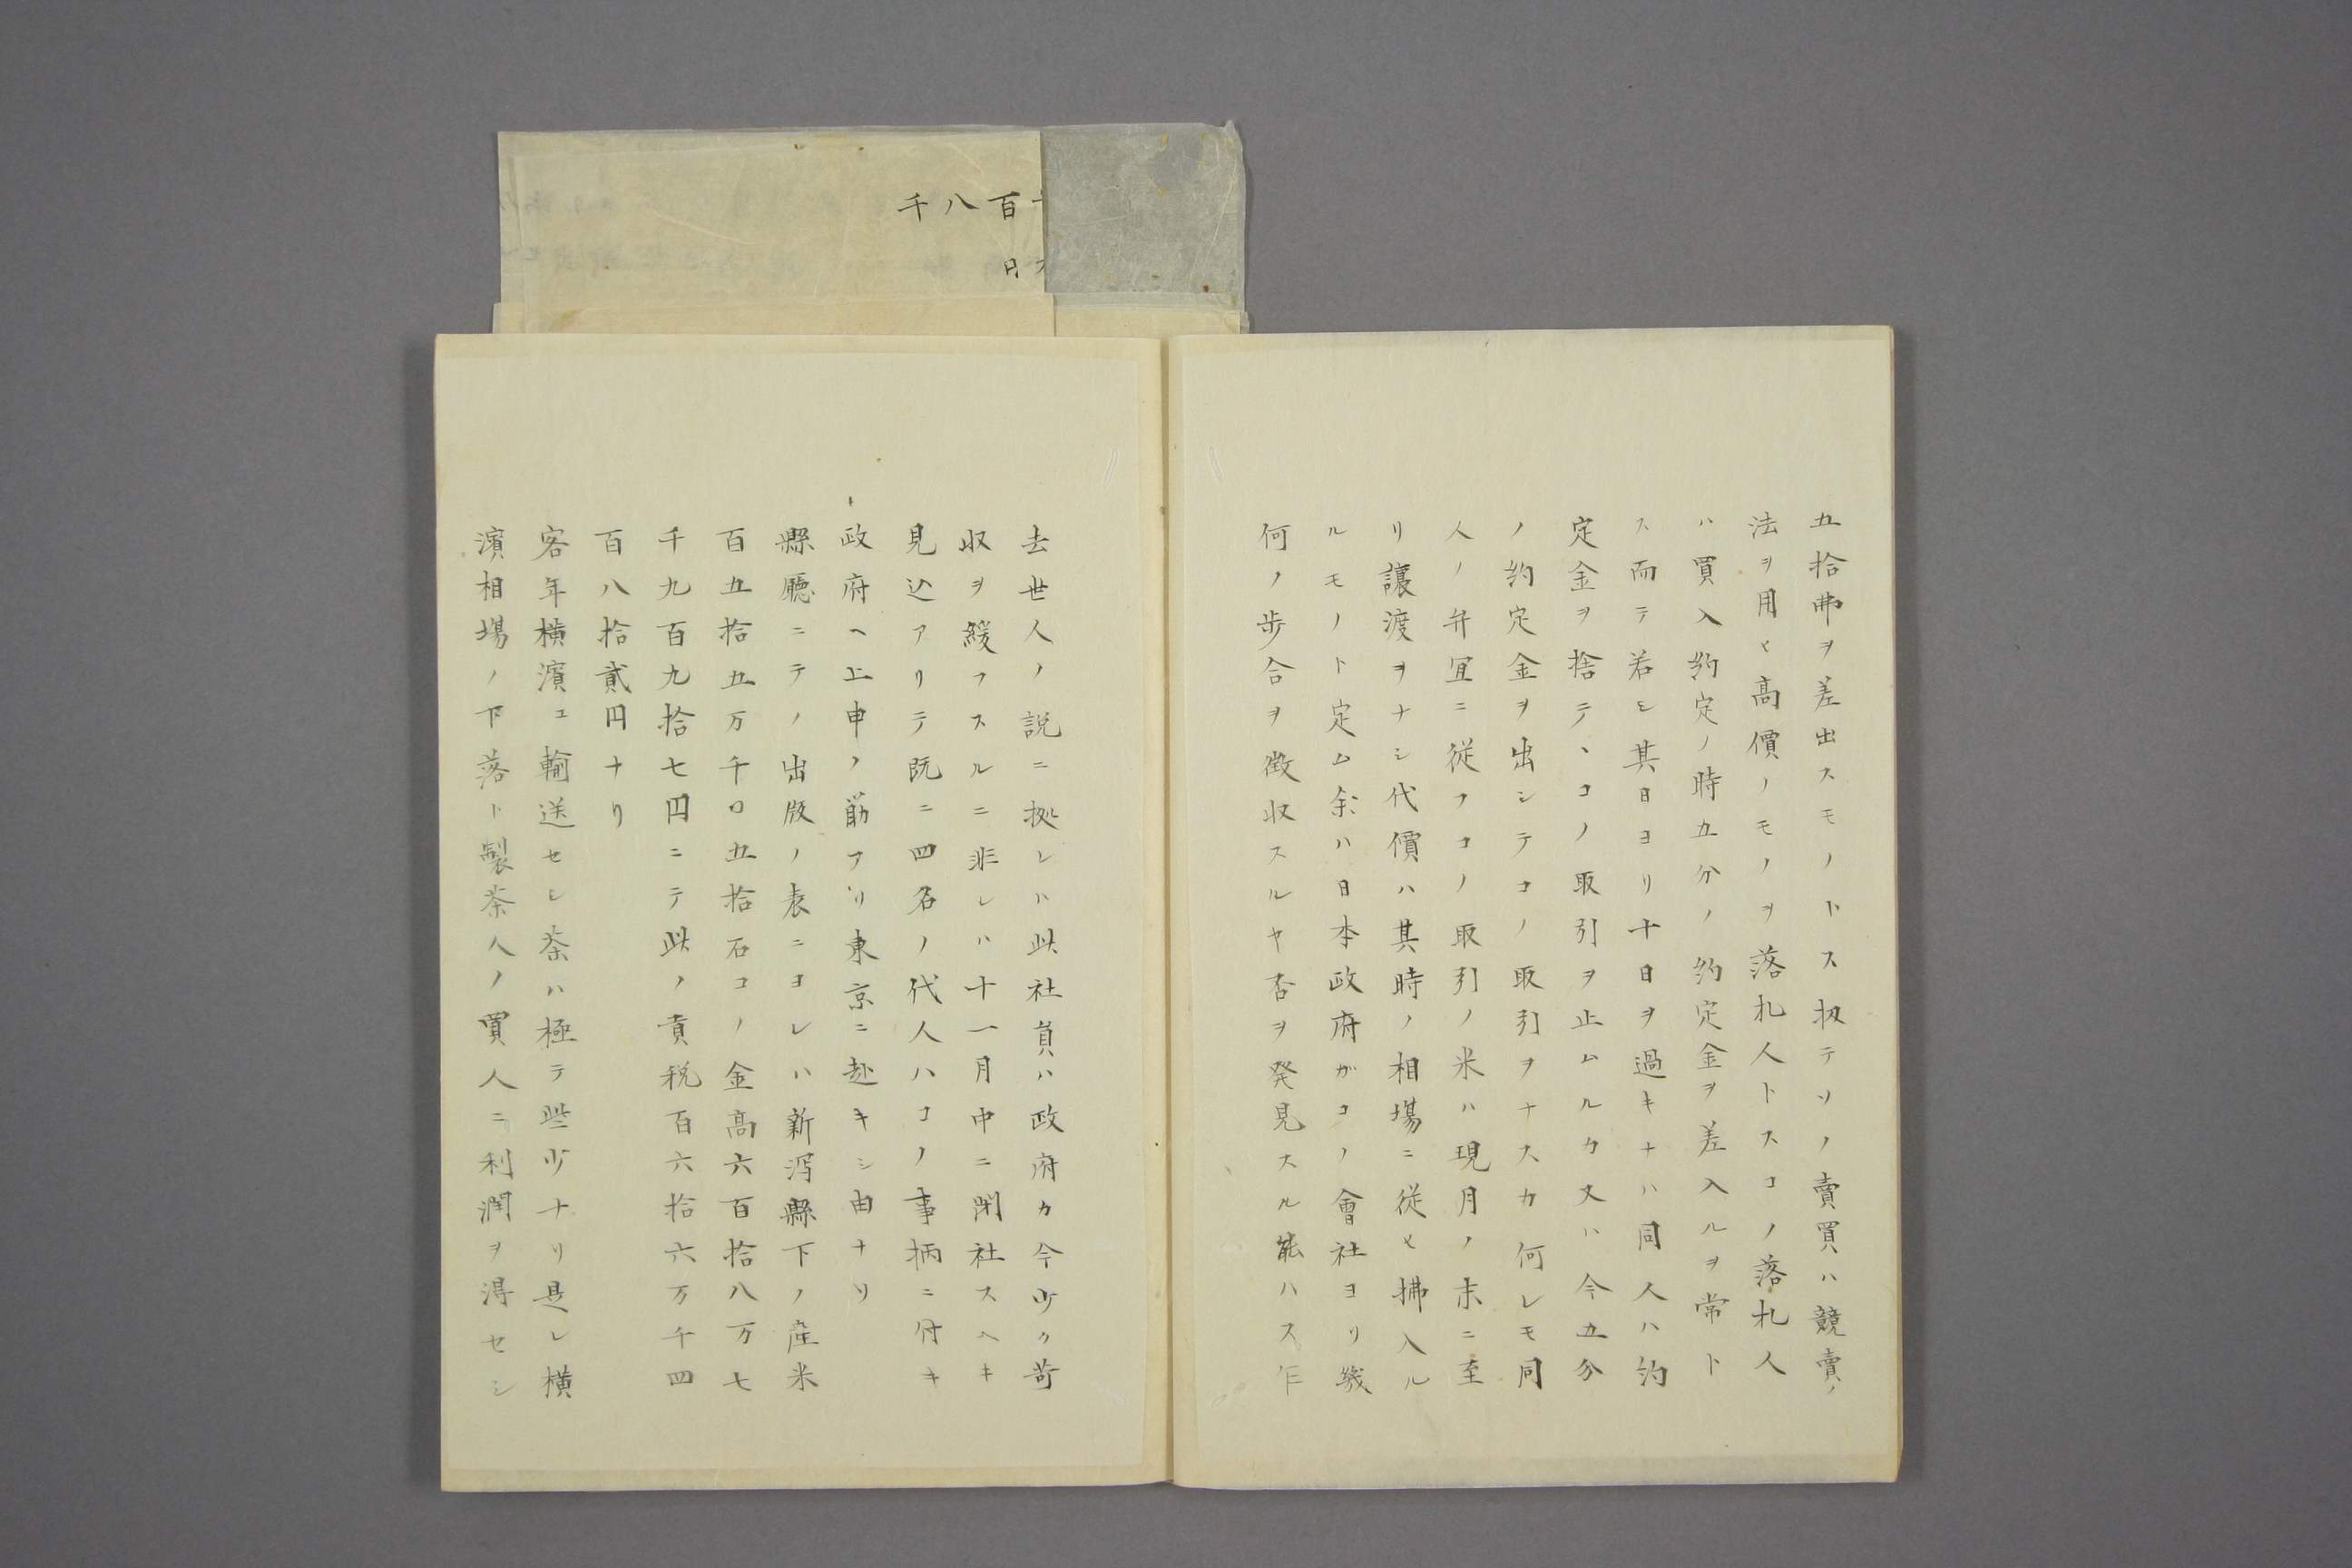 五拾弗ヲ差出スモノトス扨テソノ賣買ハ競賣ノ
法ヲ用ヒ高價ノモノヲ落札人トスコノ落札人
ハ買入約定ノ時五分ノ約定金ヲ差入ルヲ常ト
ス而テ若シ其日ヨリ十日ヲ過キナハ同人ハ約
定金ヲ捨テヽコノ取引ヲ止ムルカ又ハ今五分
ノ約定金ヲ出シテコノ取引ヲナスカ何レモ同
人ノ弁宜ニ従フコノ取引ノ米ハ現月ノ末ニ至
リ讓渡ヲナシ代價ハ其時ノ相場ニ従ヒ拂入ル
ルモノト定ム余ハ日本政府ガコノ會社ヨリ幾
何ノ歩合ヲ徴収スルヤ否ヲ発見スル能ハス乍
去世人ノ説ニ拠レハ此社員ハ政府カ今少ク苛
収ヲ緩フスルニ非レハ十一月中ニ閉社スヘキ
見込アリテ既ニ四名ノ代人ハコノ事柄ニ付キ
政府ヘ上申ノ筋アリ東京ニ赴キシ由ナリ
縣廳ニテノ出版ノ表ニヨレハ新潟縣下ノ産米
百五拾五万千〇五拾石コノ金高六百拾八万七
千九百九拾七円ニテ此ノ貢税百六拾六万千四
百八拾貳円ナリ
客年横濱エ輸送セシ茶ハ極テ些少ナリ是レ横
濱相場ノ下落ト製茶人ノ買人ニ利潤ヲ得セシ
百八千
円